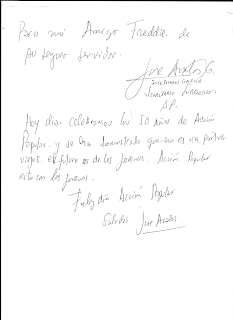 Para mi Amigo Freddie de
su seguro servidor.
José Avalos G.
José Avalos
A.P.
Hoy dia celebramos los 50 Años de Acción
Popular, y se ha demostrado que no es un partido
viejo, el futuro es de los jovenes. Acción Popular
esta con los jovenes.
Feliz dia Acción Popular
Saludos José Avalos